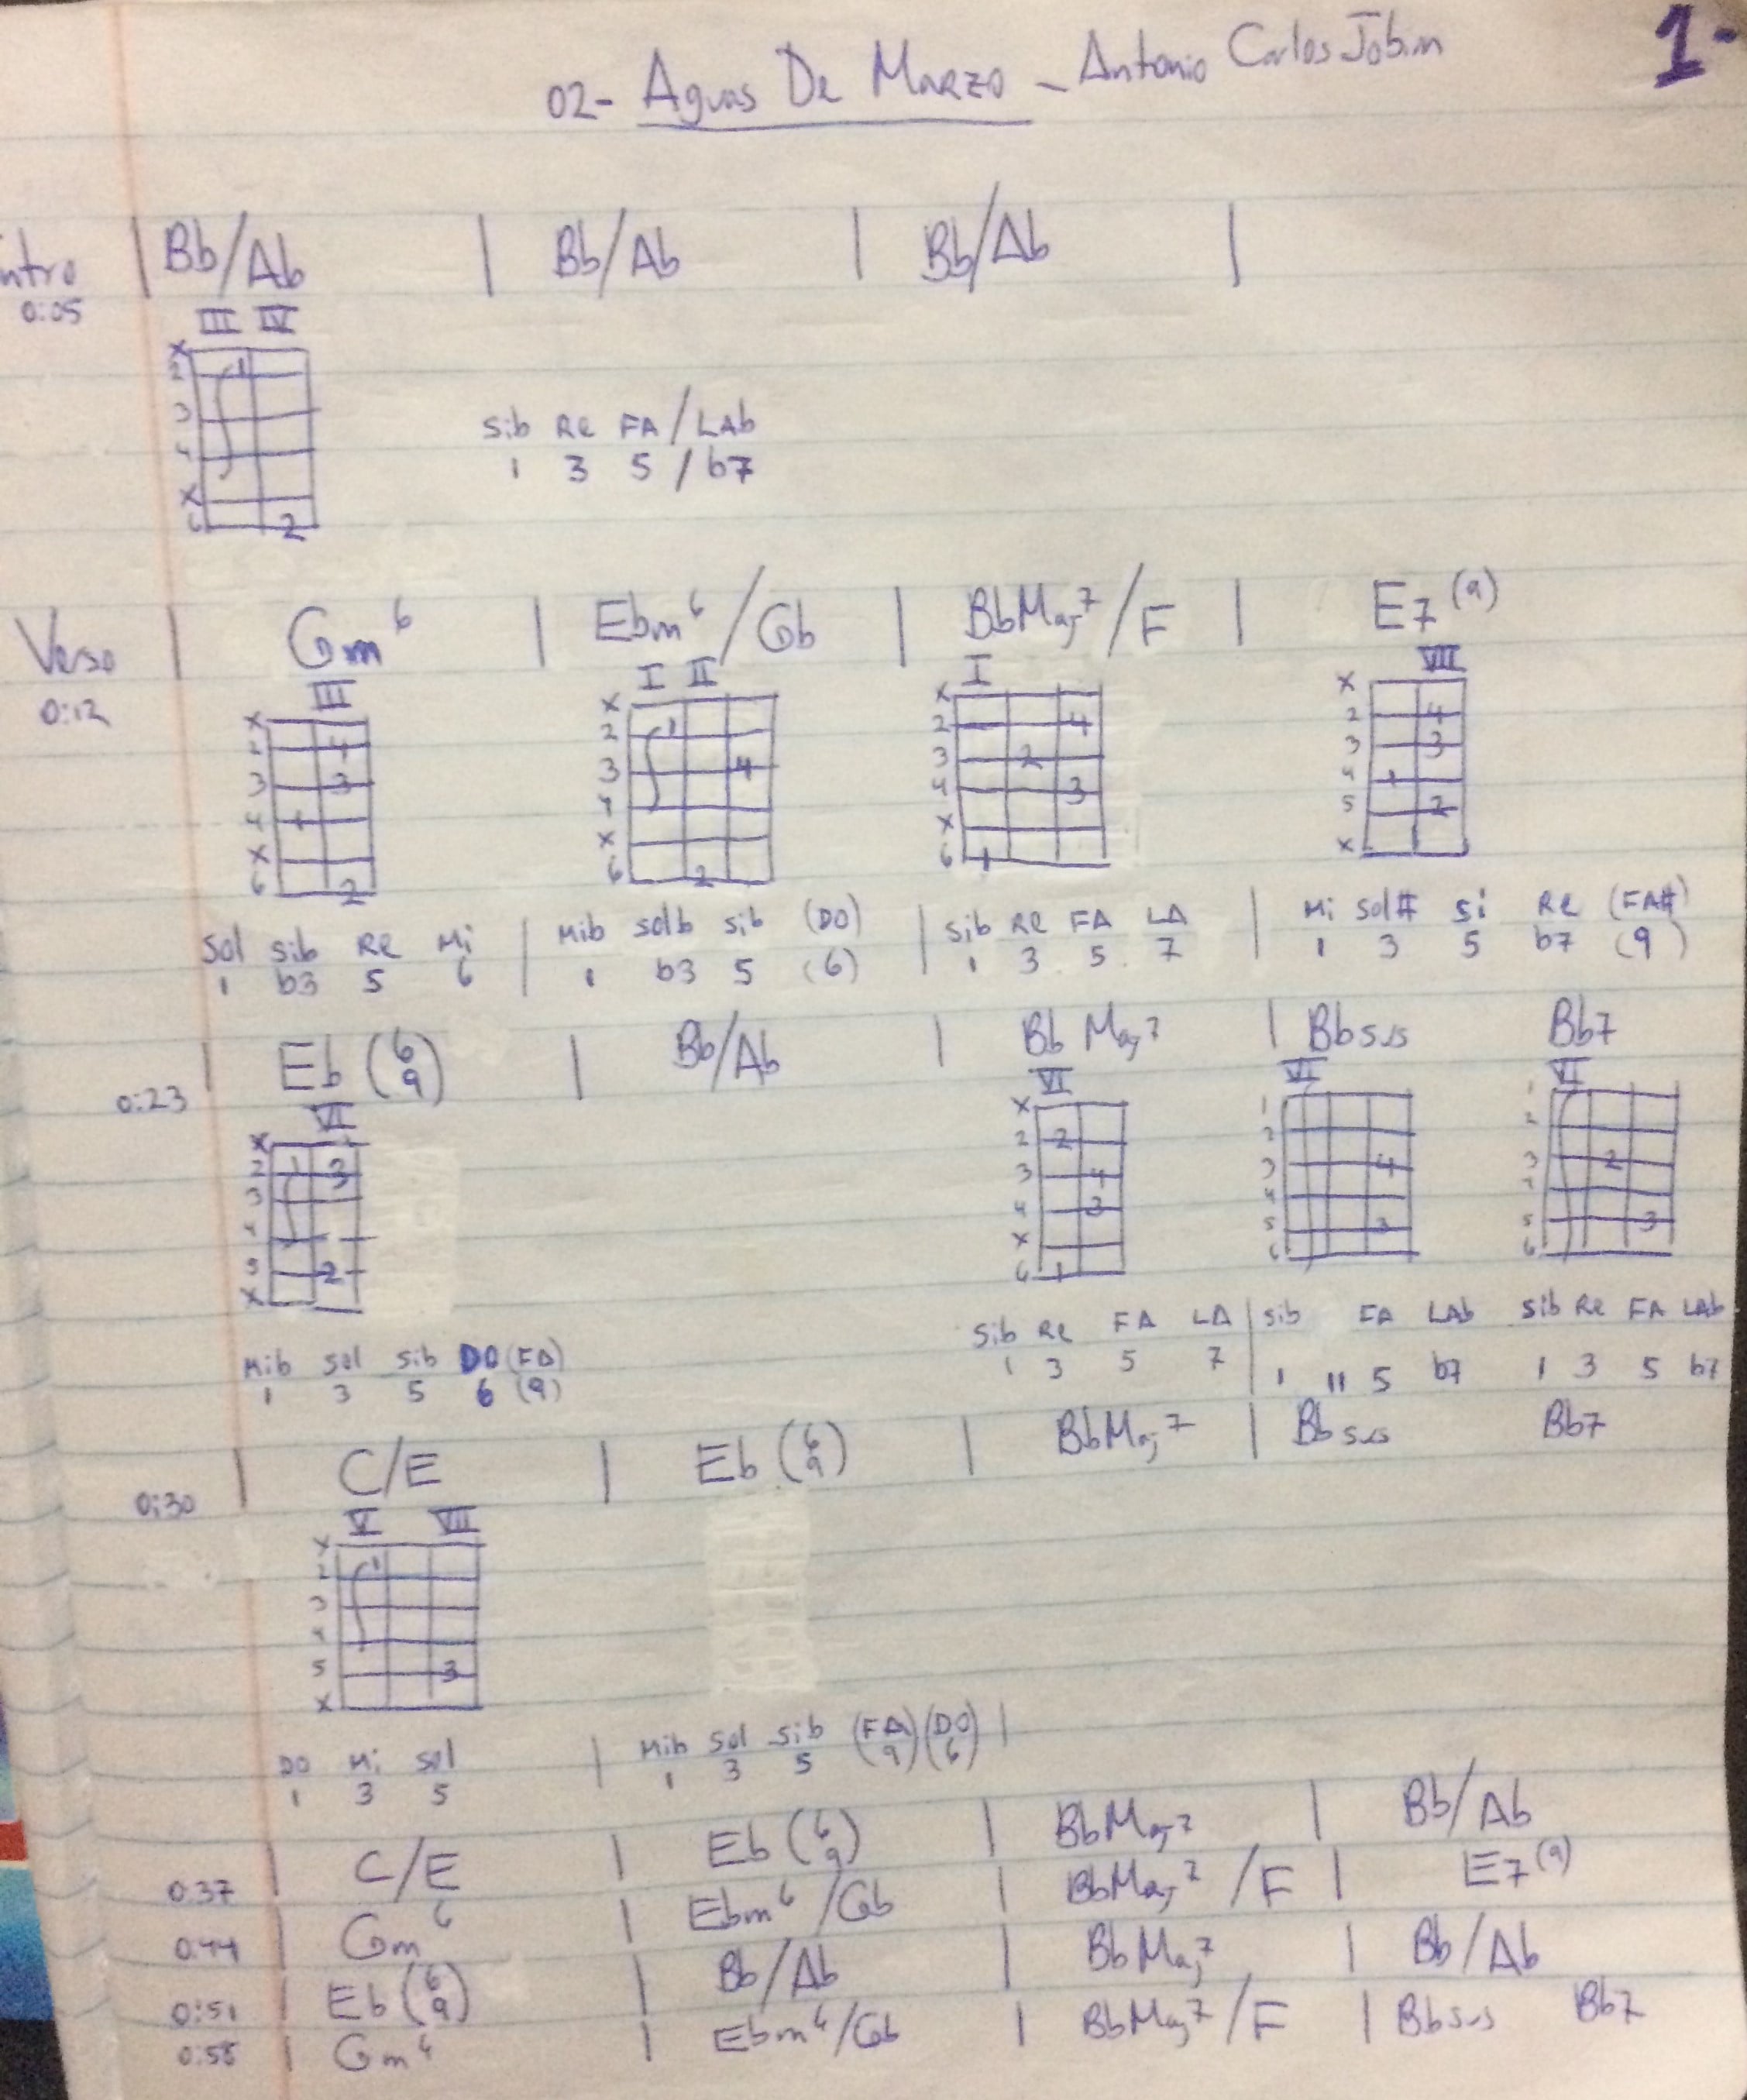 1-
02- Aguas De Marzo - Antonio Carlos Jobim
ntro | Bb/Ab | Bb/Ab | Bb/Ab |
0:05
III IV
x
2 1
3
4
x
6 2
Sib Re FA / LAb
1 3 5 / b7
Verso | Gm6 | Ebm6/Gb | BbMaj7/F | E7(9)
0:12
III I II I VII
x x x x
2 4 2 1 2 4 2 4
3 3 3 4 3 2 3 3
4 1 4 4 3 4 1
x x x 5 2
6 2 6 2 6 1 x
Sol Sib Re Mi | Mib Solb Sib (DO) | Sib Re FA LA | Mi Sol# Si Re (FA#)
1 b3 5 6 | 1 b3 5 (6) | 1 3 5 7 | 1 3 5 b7 (9)
0:23 | Eb(6 9) | Bb/Ab | BbMaj7 | Bbsus Bb7
VI VI VI VI
x x 1 1
2 1 3 2 2 2 2
3 3 4 3 4 3 2
4 4 3 4 4
5 2 x 5 3 5 3
x 6 1 6 6
Sib Re FA LA | Sib FA LAb Sib Re FA LAb
1 3 5 7 | 1 11 5 b7 1 3 5 b7
Mib Sol Sib DO (FA)
1 3 5 6 (9)
0:30 | C/E | Eb(6 9) | BbMaj7 | Bbsus Bb7
V VII
x
2 1
3
4
5 3
x
DO Mi Sol | Mib Sol Sib (FA) (DO) |
1 3 5 1 3 5 9 6
0:37 | C/E | Eb(6 9) | BbMaj7 | Bb/Ab
0:44 | Gm6 | Ebm6/Gb | BbMaj7/F | E7(9)
0:51 | Eb(6 9) | Bb/Ab | BbMaj7 | Bb/Ab
0:58 | Gm6 | Ebm6/Gb | BbMaj7/F | Bbsus Bb7